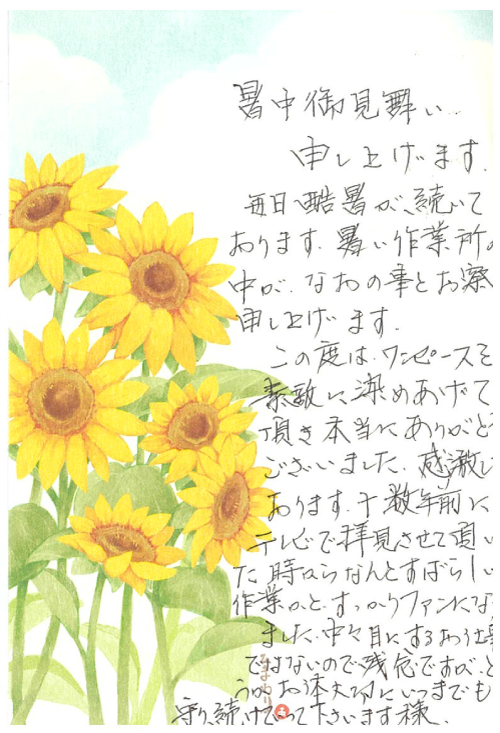 暑中御見舞い
申し上げます.
毎日酷暑が、続いて
おります. 暑い作業所の
中が. なおの事とお察
申し上げます.
この度は. ワンピースを
素敵に染めあげて
頂き本当にありがとう
ございました. 感激し
おります. 十数年前に
テレビで拝見させて頂い
た時からなんとすばらしい
作業かと. すっかりファンにな
ました. 中々目にするお仕事
ではないので残念ですが. ど
うかお体大切にいつまでも
守り続けていって下さいます様.
ひまわり